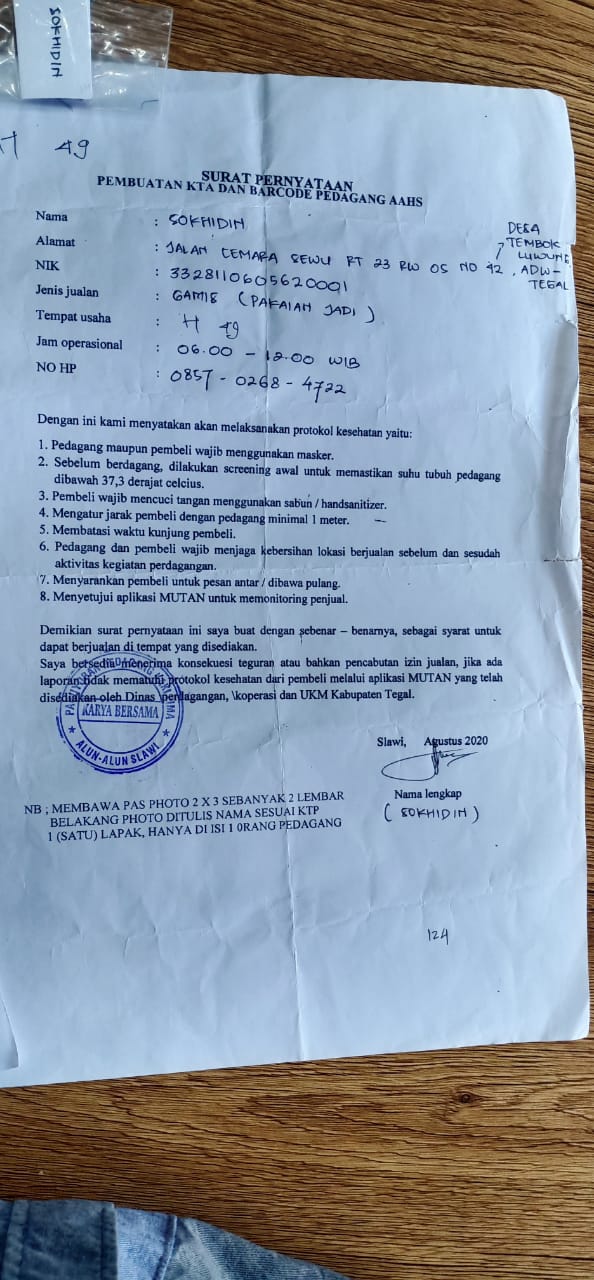 SOKHIDIN
H 49
SURAT PERNYATAAN
PEMBUATAN KTA DAN BARCODE PEDAGANG AAHS
Nama : SOKHIDIN
Alamat : JALAN CEMARA SEWU RT 23 RW 05 NO 42, DESA TEMBOK LUWUNG, ADW-TEGAL
NIK : 3328110605620091
Jenis jualan : GAMIS (PAKAIAN JADI)
Tempat usaha : H 49
Jam operasional : 06.00 - 12.00 WIB
NO HP : 0857 - 0268 - 4722
Dengan ini kami menyatakan akan melaksanakan protokol kesehatan yaitu:
1. Pedagang maupun pembeli wajib menggunakan masker.
2. Sebelum berdagang, dilakukan screening awal untuk memastikan suhu tubuh pedagang
dibawah 37,3 derajat celcius.
3. Pembeli wajib mencuci tangan menggunakan sabun / handsanitizer.
4. Mengatur jarak pembeli dengan pedagang minimal 1 meter.
5. Membatasi waktu kunjung pembeli.
6. Pedagang dan pembeli wajib menjaga kebersihan lokasi berjualan sebelum dan sesudah
aktivitas kegiatan perdagangan.
7. Menyarankan pembeli untuk pesan antar / dibawa pulang.
8. Menyetujui aplikasi MUTAN untuk memonitoring penjual.
Demikian surat pernyataan ini saya buat dengan sebenar – benarnya, sebagai syarat untuk
dapat berjualan di tempat yang disediakan.
Saya bersedia menerima konsekuesi teguran atau bahkan pencabutan izin jualan, jika ada
laporan tidak mematuhi protokol kesehatan dari pembeli melalui aplikasi MUTAN yang telah
disediakan oleh Dinas \perdagangan, \koperasi dan UKM Kabupaten Tegal.
KARYA BERSAMA
ALUN-ALUN SLAWI
Slawi, Agustus 2020
Nama lengkap
(SOKHIDIN)
NB ; MEMBAWA PAS PHOTO 2 X 3 SEBANYAK 2 LEMBAR
BELAKANG PHOTO DITULIS NAMA SESUAI KTP
1 (SATU) LAPAK, HANYA DI ISI 1 0RANG PEDAGANG
124